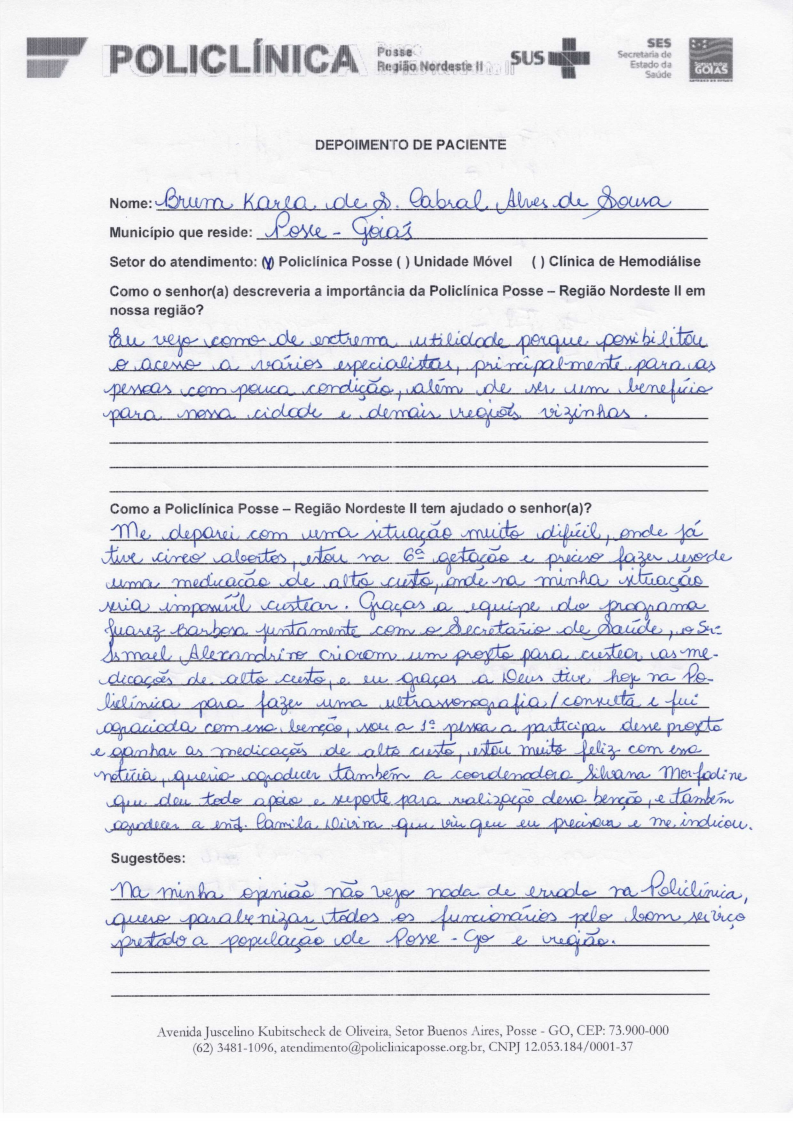 POLICLÍNICA
Posse
Região Nordeste II
SUS
SES
Secretaria de
Estado da
Saúde
GOIÁS
DEPOIMENTO DE PACIENTE
Nome: Bruna Karla de S. Cabral Alves de Sousa
Município que reside: Posse - Goiás
Setor do atendimento: (X) Policlínica Posse ( ) Unidade Móvel ( ) Clínica de Hemodiálise
Como o senhor(a) descreveria a importância da Policlínica Posse – Região Nordeste II em
nossa região?
Eu vejo como de extrema utilidade porque possibilitou
o acesso a vários especialistas, principalmente para as
pessoas com pouca condição, além de ser um benefício
para nossa cidade e demais regiões vizinhas.
Como a Policlínica Posse – Região Nordeste II tem ajudado o senhor(a)?
Me deparei com uma situação muito difícil, onde já
tive cinco abortos, estou na 6ª getação e preciso fazer uso de
uma medicação de alto custo, onde na minha situação
seria impossível custear. Graças a equipe do programa
Juarez Barbosa juntamente com o Secretario de Saúde, o Sr.
Ismael Alexandrino criaram um projeto para custear as me-
dicações de alto custo, e eu graças a Deus tive hoje na Po-
liclínica para fazer uma ultrassonografia / consulta e fui
agraciada com essa benção, sou a 1ª pessoa a participar desse projeto
e ganhar as medicações de alto custo, estou muito feliz com essa
notícia, queria agradecer também a coordenadora Silvana
que deu todo apoio e suporte para realização dessa benção, e também
agradecer a enf. Camila que viu que eu precisava e me indicou.
Sugestões:
Na minha opinião não vejo nada de errado na Policlínica,
quero parabenizar todos os funcionários pelo bom serviço
pretado a população de Posse - Go e região.
Avenida Juscelino Kubitscheck de Oliveira, Setor Buenos Aires, Posse - GO, CEP: 73.900-000
(62) 3481-1096, atendimento@policlinicaposse.org.br, CNPJ 12.053.184/0001-37